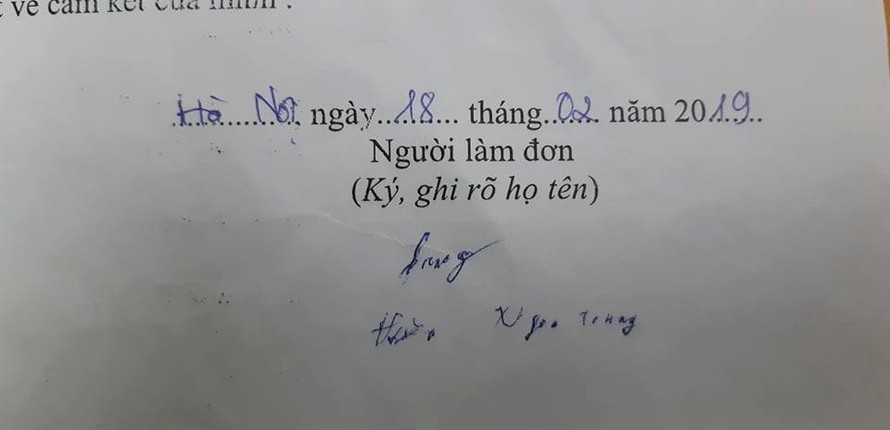 về cam kết của mình .
Hà Nội, ngày...18... tháng..02.. năm 2019..
Người làm đơn
(Ký, ghi rõ họ tên)
Trung